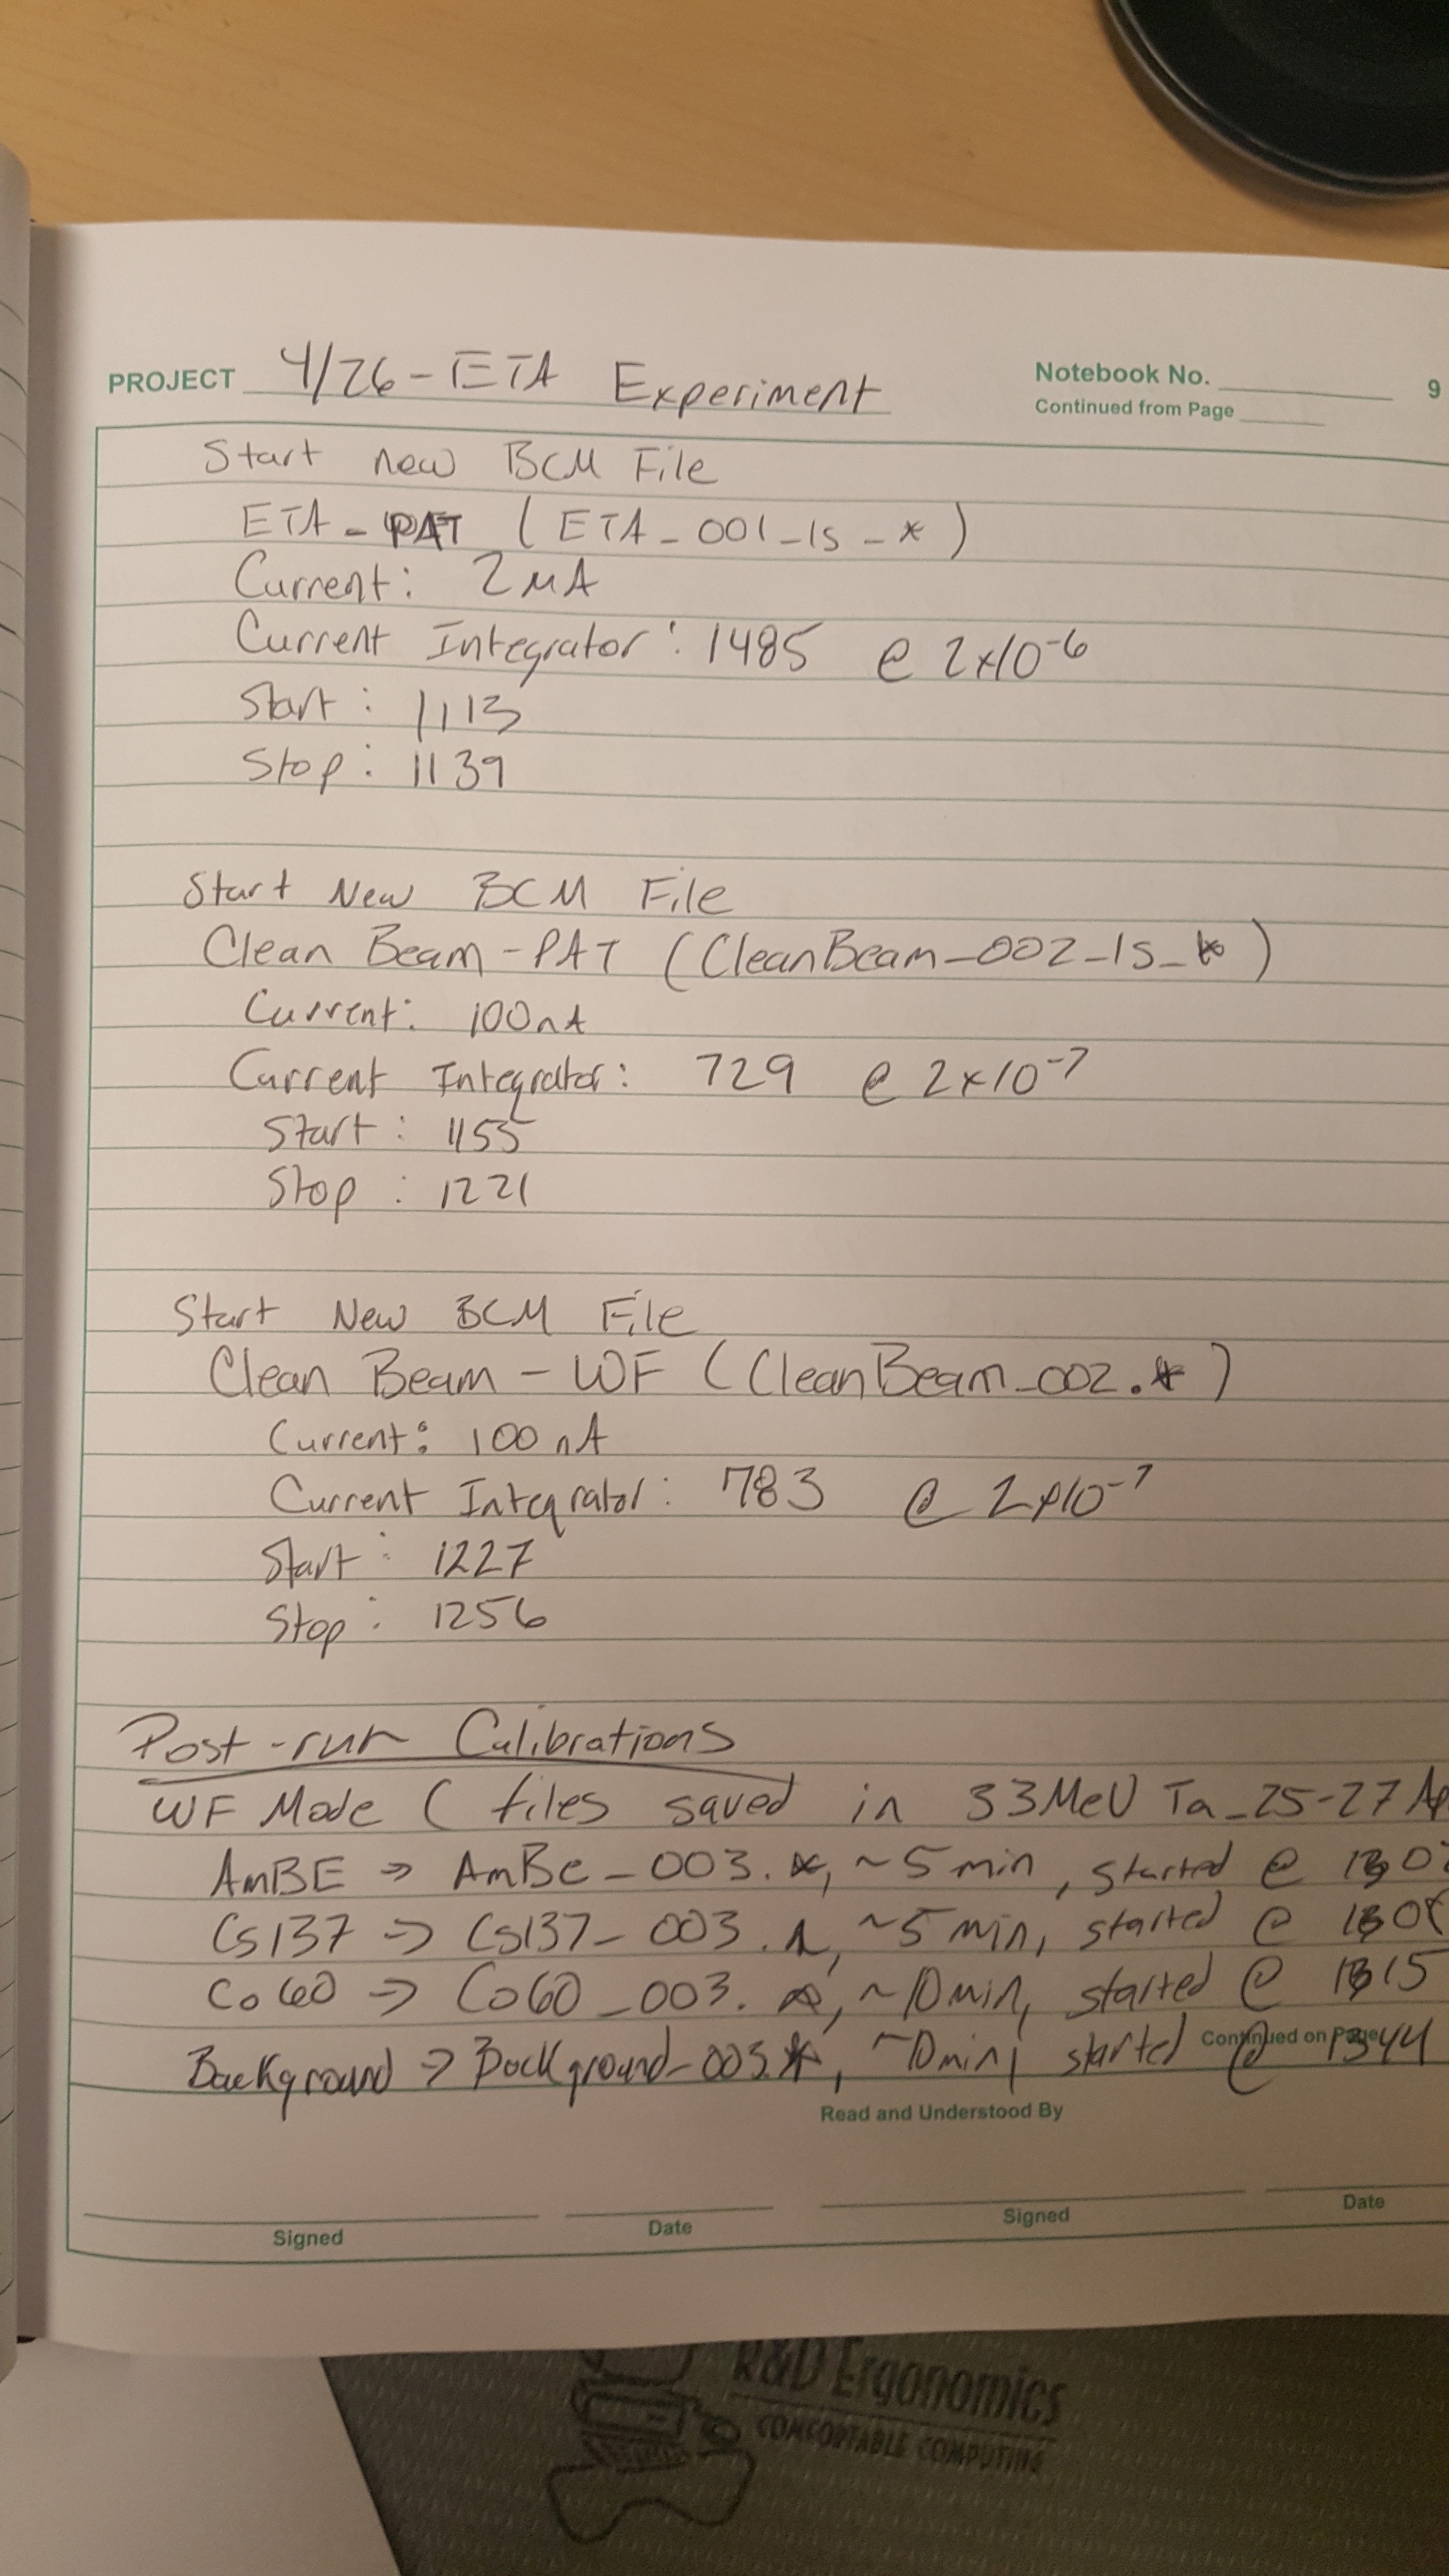 PROJECT 4/26-ETA Experiment
Notebook No.
9
Continued from Page
Start new BCM File
ETA-PAT (ETA_001_1s_*)
Current: 2μA
Current Integrator: 1485 @ 2x10-6
Start: 1113
Stop: 1139
Start New BCM File
Clean Beam-PAT (CleanBeam_002_1s_*)
Current: 100nA
Current Integrator: 729 @ 2x10-7
Start: 1155
Stop: 1221
Start New BCM File
Clean Beam - WF (CleanBeam_002.*)
Current: 100 nA
Current Integrator: 783 @ 2x10-7
Start: 1227
Stop: 1256
Post-run Calibrations
WF Mode ( files saved in 33MeV Ta_25-27
AmBE => AmBe_003.*, ~5 min, started @
Cs137 => Cs137_003. ~5 min, started @
Co60 => Co60_003. ~10 min, started @ 1315
Background => Background_003.*, ~10min, started @ 1344
Continued on Page
Read and Understood By
Signed
Date
Signed
Date
R&D Ergonomics
COMFORTABLE COMPUTING